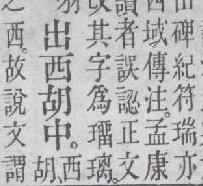 碑紀符瑞亦
西域傳注。孟康
讀者誤認正文
改其字為瑠璃。
出西胡中。西
胡、
之西。故說文謂